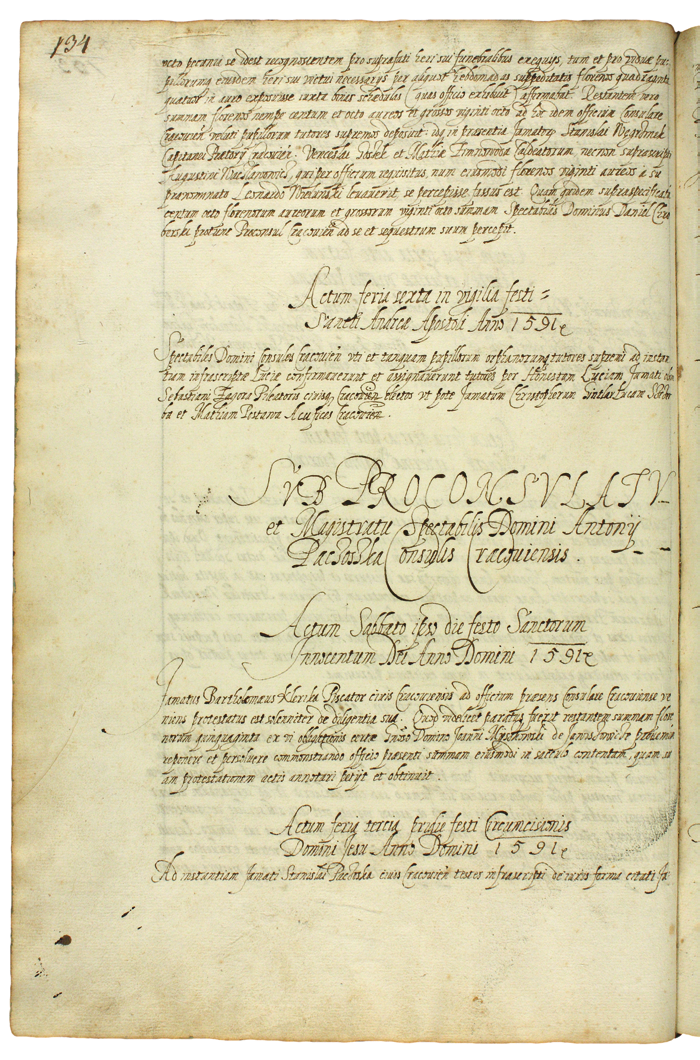 134
octo pecunia se idest recognoscentem pro suprafati heri sui funebralibus exequijs, tum et pro viduæ pu-
pillorumq eiusdem heri sui victui necessarijs per august hebdomadas suppeditatis florenos quadraginta
quatuor in auro exposuisse iuxta binas schedulas quas officio exhibuit affirmabat. Restantem vero
summam florenos nempe centum et octo aureos et grossos viginti octo ad hoc idem officium Consulare
Cracovien veluti pupillorum tutores supremos deposuit. idq in præsentia famatorum Stanislai
Capitanei Prætorij Cracovien. Venceslai et Mathiæ Caldeatorum necnon suprascripti
Augustini qui per officium requisitus, num eiusmodi florenos viginti aureos a su
prænominato Leonardo levaverit, se percepisse fassus est. Quam quidem supraspecificatam
centum octo florenorum aureorum et grossorum viginti octo summam Spectabilis Dominus Daniel Chro
berski protunc Proconsul Cracovien ad se et sequestrum suum percepit.
Actum feria sexta in vigilia festi =
Sancti Andreæ Apostoli Anno 1591
Spectabiles Domini Consules Cracovien uti et tanquam pupillorum orphanorumq tutores supremi ad instan
tiam infrascriptæ Luciæ confirmaverunt et assignaverunt tutores per Honestam Luciam famati olim
Sebastiani Zagora Pileatoris civisq Cracovien electos ut pote famatum Christophorum Lucam
ba et Mathiam Pestana Aurifices Cracovien.
SVB PROCONSVLATV
et Magistratu Spectabilis Domini Antonij
Pachoskka Consulis Cracoviensis.
Actum Sabbato ipso die festo Sanctorum
Innocentum Dei Anno Domini 1591
Famatus Bartholomæus Klerika Piscator civis Cracoviensis ad officium præsens Consulare Cracoviense ve
niens protestatus est solenniter de diligentia sua. Quod videlicet paratus fuerit restantem summam flore
norum quinquaginta ex vi obligationis certæ Gnoso Domino Joanni Myskowski de
reponere et persolvere commonstrando officio præsenti summam eiusmodi in sacculo contentam, quam su
am protestationem actis annotari petijt et obtinuit.
Actum feria tercia pridie festi Circumcisionis
Domini Jesu Anno Domini 1591
Ad instantiam famati Stanislai Pachoska civis Cracovien testes infrascripti de iuris forma citati